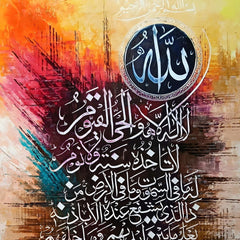 بسم الله الرحمن الرحيم
الله
لا إله إلا هو الحي القيوم
لا تأخذه سنة ولا نوم
له ما في السموت وما في الأرض من
ذا الذي يشفع عنده إلا بإذنه
يعلم ما بين أيديهم وما